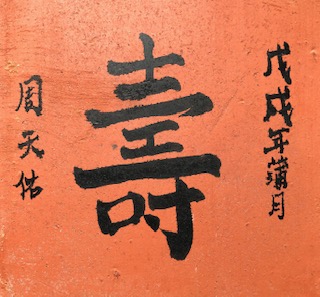 戊戌年蒲月
壽
周天佑